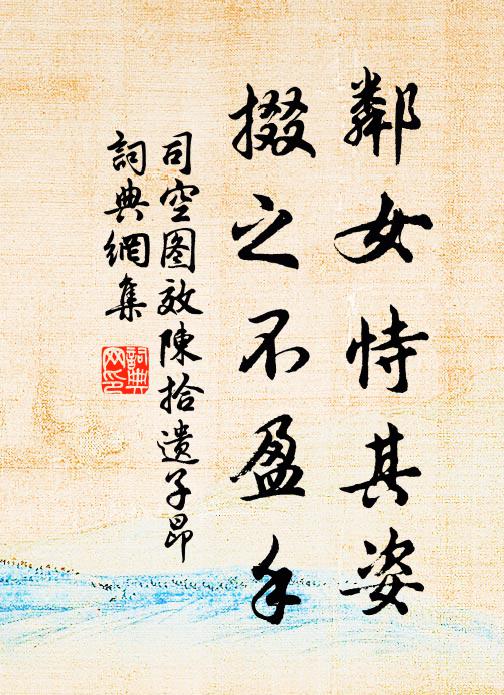 鄰女恃其姿
掇之不盈手
司空图效陳拾遺子昂
詞典網集
詞典网印